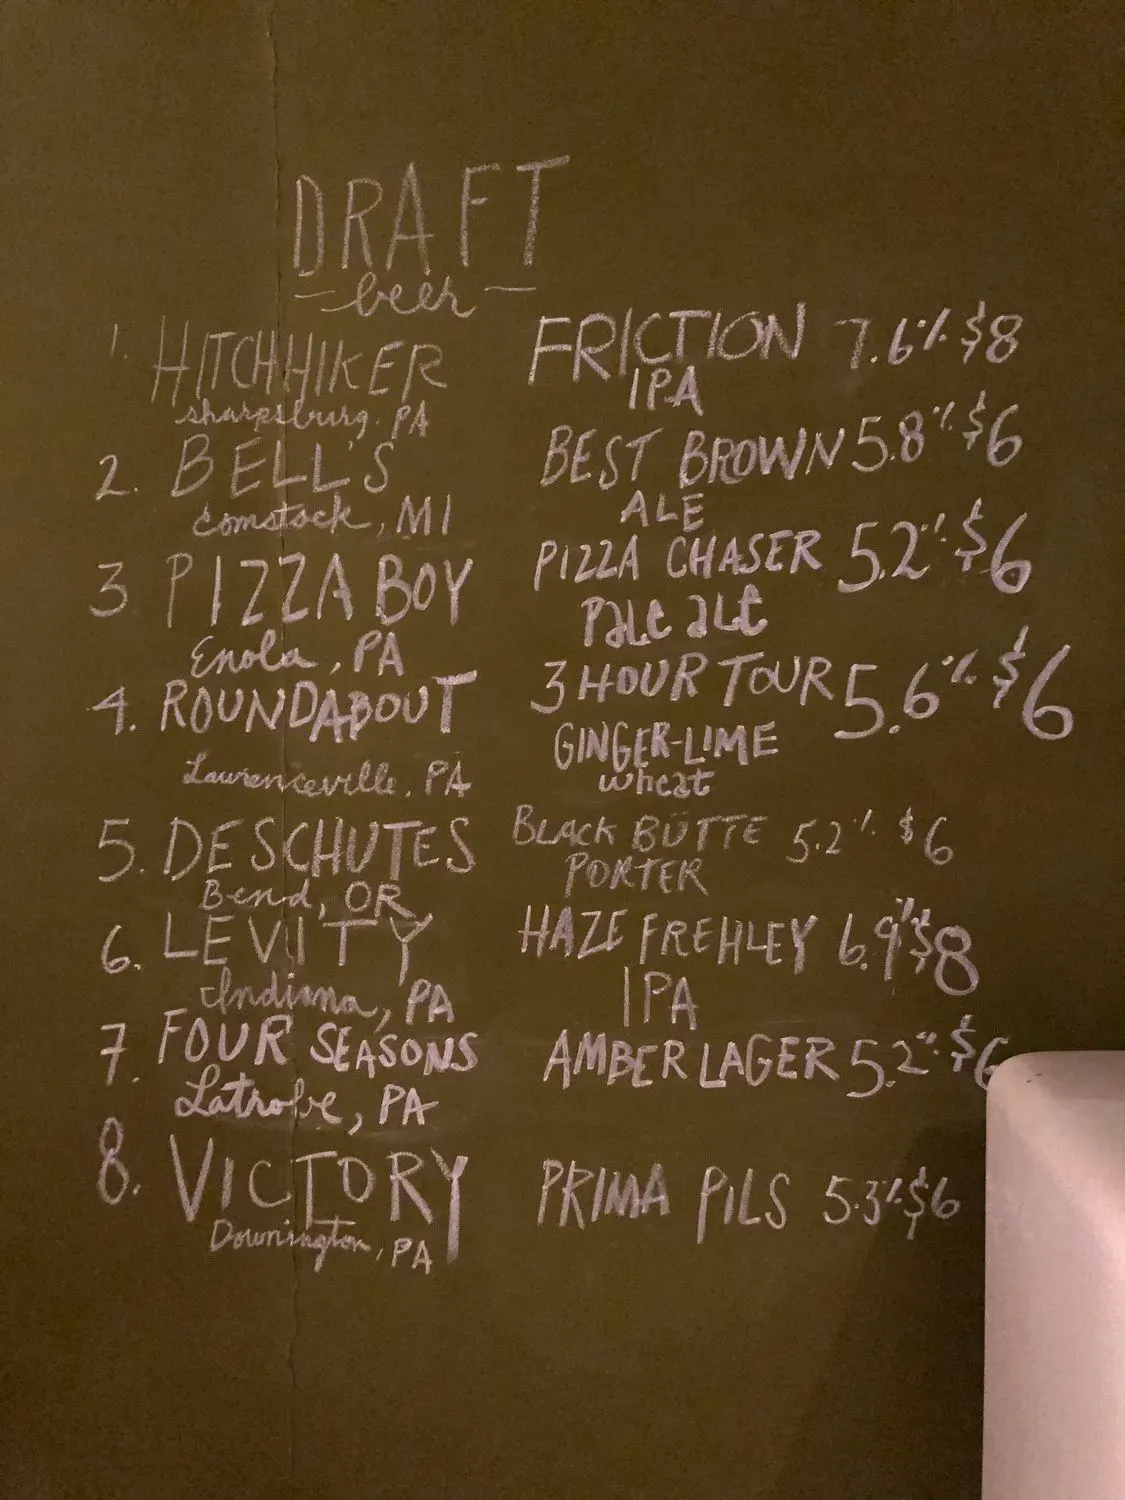 DRAFT
beer
1. HITCHHIKER FRICTION 7.6% $8
sharpsburg. PA IPA
2. BELL'S BEST BROWN 5.8% $6
Comstock, MI ALE
3 PIZZA BOY PIZZA CHASER 5.2% $6
Enola, PA Pale ale
4. ROUNDABOUT 3 HOUR TOUR 5.6% $6
GINGER-LIME
Lawrenceville, PA wheat
5. DESCHUTES BLACK BÜTTE 5.2% $6
Bend, OR PORTER
6. LEVITY HAZE FREHLEY 6.9% $8
Indiana, PA IPA
7. FOUR SEASONS AMBER LAGER 5.2% $6
Latrobe, PA
8. VICTORY PRIMA PILS 5.3% $6
Downington, PA